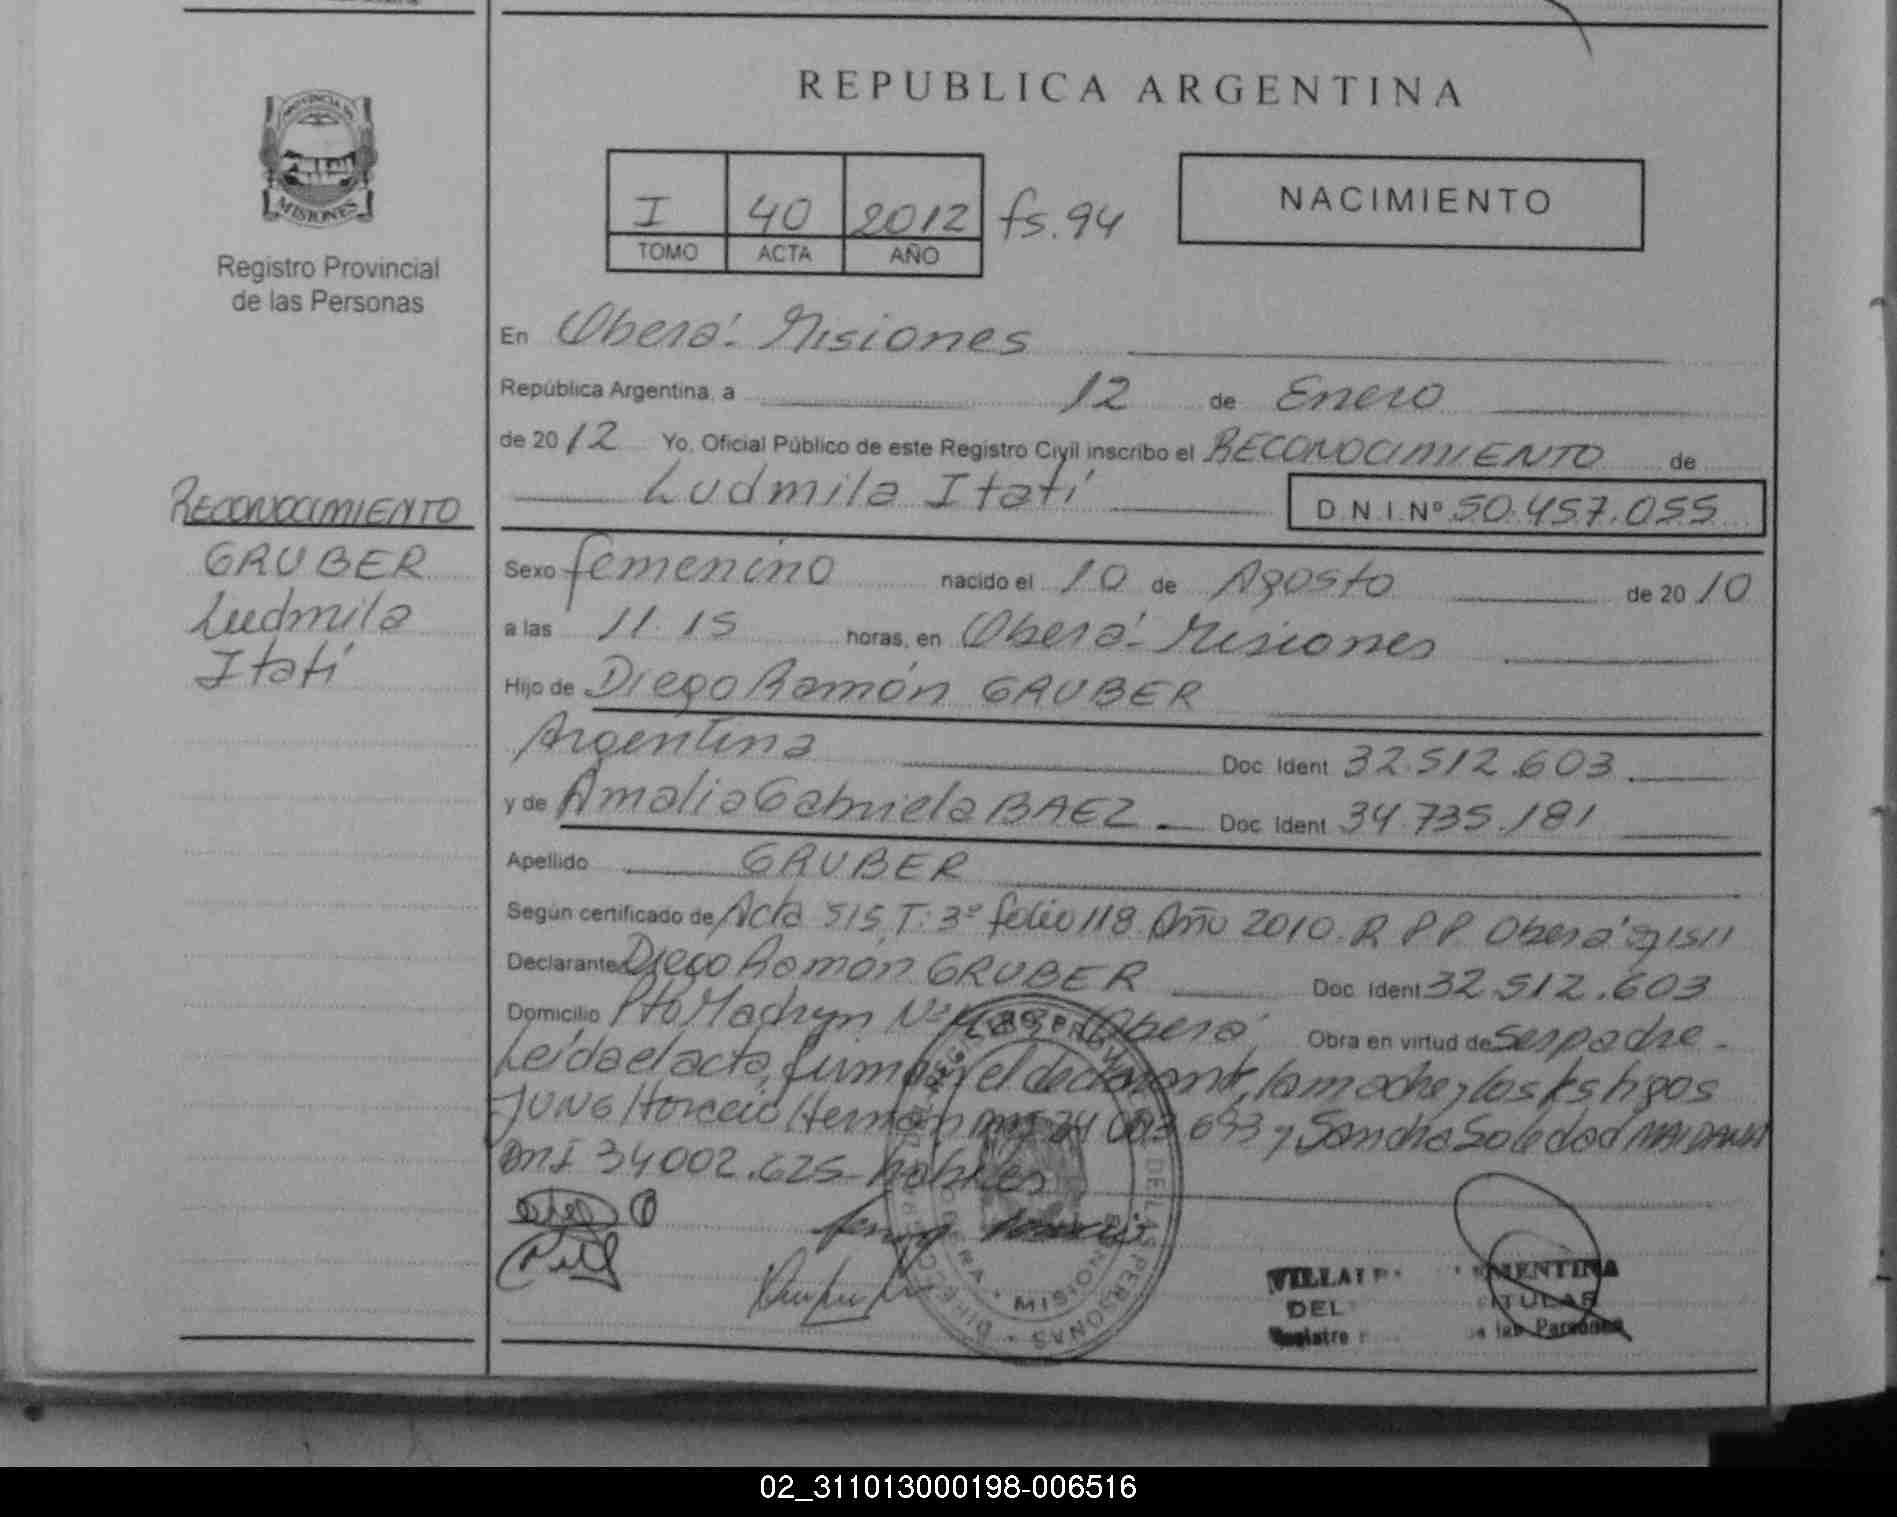 REPUBLICA ARGENTINA
PROVINCIA DE
MISIONES
Registro Provincial
de las Personas
I 40 2012 fs. 94
TOMO ACTA AÑO
NACIMIENTO
En Oberá - Misiones
República Argentina, a 12 de Enero
de 2012 Yo, Oficial Público de este Registro Civil inscribo el RECONOCIMIENTO de
Ludmila Itatí D.N.I. Nº 50.457.055
RECONOCIMIENTO
GRUBER
Ludmila
Itatí
Sexo femenino nacido el 10 de Agosto de 2010
a las 11.15 horas, en Oberá - Misiones
Hijo de Diego Ramón GRUBER
Argentina Doc. Ident 32.512.603
y de Amalia Gabriela BAEZ Doc. Ident 34.735.181
Apellido GRUBER
Según certificado de Acta 515 T: 3º folio 118 Año 2010. R P P Oberá
Declarante Diego Ramón GRUBER Doc. Ident 32.512.603
Domicilio Pto Madryn Nº Oberá Obra en virtud de ser padre -
Leída el acta, firman el declarante, la madre y los testigos
JUNG Horacio Hernán DNI y Sandra Soledad
DNI 34002.625 - hábiles
REGISTRO PROVINCIAL DE LAS PERSONAS
OBERA - MISIONES
DEL TITULAR
Registro de las Personas
02_311013000198-006516